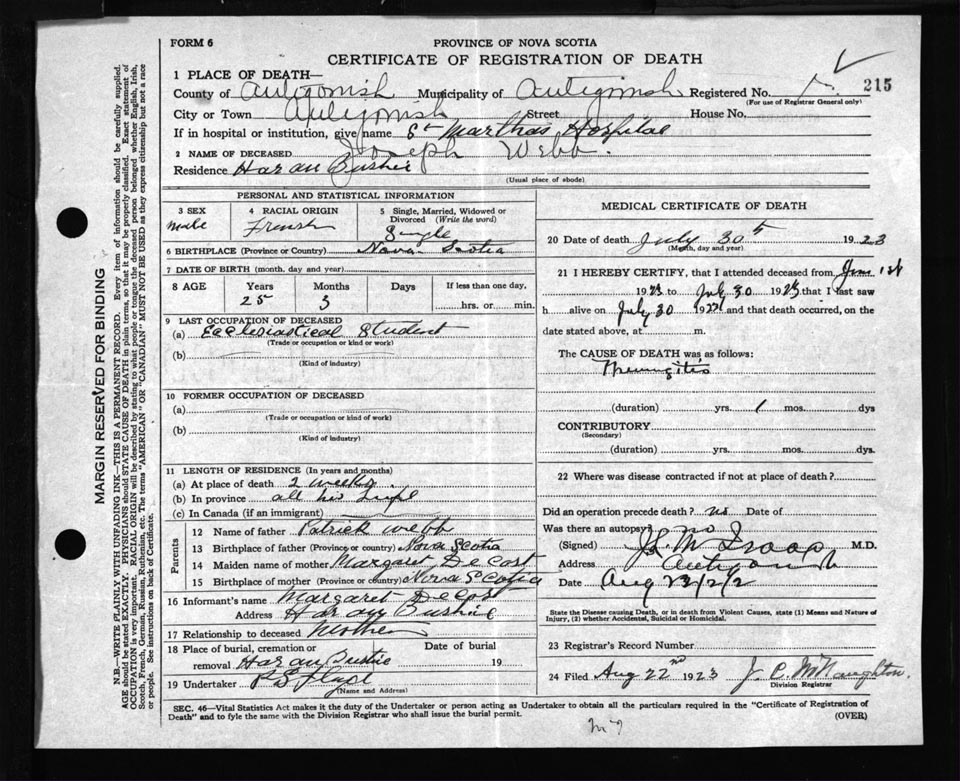 FORM 6
PROVINCE OF NOVA SCOTIA
CERTIFICATE OF REGISTRATION OF DEATH
215
1 PLACE OF DEATH—
County of Antigonish Municipality of Antigonish Registered No.
(For use of Registrar General only)
City or Town Antigonish Street House No.
If in hospital or institution, give name St Marthas Hospital
2 NAME OF DECEASED Joseph Webb.
Residence Harau Bushie
(Usual place of abode)
PERSONAL AND STATISTICAL INFORMATION
3 SEX
male
4 RACIAL ORIGIN
French
5 Single, Married, Widowed or
Divorced (Write the word)
Single
6 BIRTHPLACE (Province or Country) Nova Scotia
7 DATE OF BIRTH (month, day and year)
8 AGE Years Months Days If less than one day,
25 3 hrs. or min.
9 LAST OCCUPATION OF DECEASED
(a) Ecclesiastical Student
(Trade or occupation or kind of work)
(b)
(Kind of industry)
10 FORMER OCCUPATION OF DECEASED
(a)
(Trade or occupation or kind of work)
(b)
(Kind of industry)
11 LENGTH OF RESIDENCE (In years and months)
(a) At place of death 2 weeks
(b) In province all his life
(c) In Canada (if an immigrant)
Parents
12 Name of father Patrick Webb
13 Birthplace of father (Province or country) Nova Scotia
14 Maiden name of mother Margaret DeCost
15 Birthplace of mother (Province or country) Nova Scotia
16 Informant's name Margaret DeCost
Address Harau Bushie
17 Relationship to deceased Mother
18 Place of burial, cremation or Date of burial
removal Harau Bustie 19
19 Undertaker
(Name and Address)
MEDICAL CERTIFICATE OF DEATH
20 Date of death July 30 1923
(Month, day and year)
21 I HEREBY CERTIFY, that I attended deceased from June 1st
1923 to July 30 1923 that I last saw
h alive on July 30 and that death occurred, on the
date stated above, at m.
The CAUSE OF DEATH was as follows:
(duration) yrs. 1 mos. dys
CONTRIBUTORY
(Secondary)
(duration) yrs. mos. dys.
22 Where was disease contracted if not at place of death?
Did an operation precede death? no Date of
Was there an autopsy? no
(Signed) M.D.
Address Antigonish
Date Aug
State the Disease causing Death, or in death from Violent Causes, state (1) Means and Nature of
Injury, (2) whether Accidental, Suicidal or Homicidal.
23 Registrar's Record Number
24 Filed Aug 22nd 1923 J. C. McNaughton.
Division Registrar
SEC. 46—Vital Statistics Act makes it the duty of the Undertaker or person acting as Undertaker to obtain all the particulars required in the "Certificate of Registration of
Death" and to fyle the same with the Division Registrar who shall issue the burial permit.
(OVER)
MARGIN RESERVED FOR BINDING
N.B.—WRITE PLAINLY WITH UNFADING INK—THIS IS A PERMANENT RECORD. Every item of information should be carefully supplied.
AGE should be stated EXACTLY. PHYSICIANS should STATE CAUSE OF DEATH in plain terms, so that it may be properly classified. Exact statement of
OCCUPATION is very important. RACIAL ORIGIN will be described by stating to what people or tongue the deceased person belonged whether English, Irish,
Scotch, French, German, Russian, Ruthenian, etc. The terms "AMERICAN" OR "CANADIAN" MUST NOT BE USED as they express citizenship but not a race
or people. See instructions on back of Certificate.